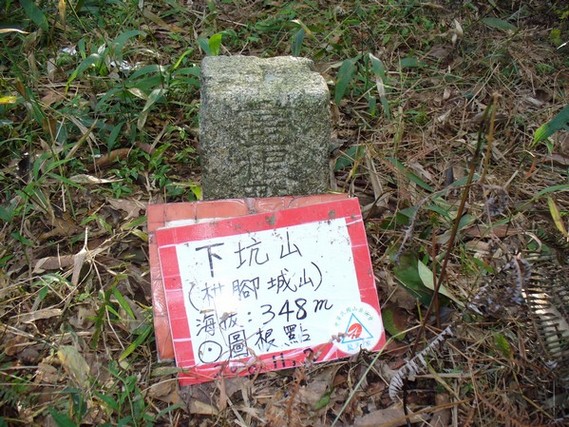 下坑山
(柑腳城山)
海拔:348m
⊙圖根點